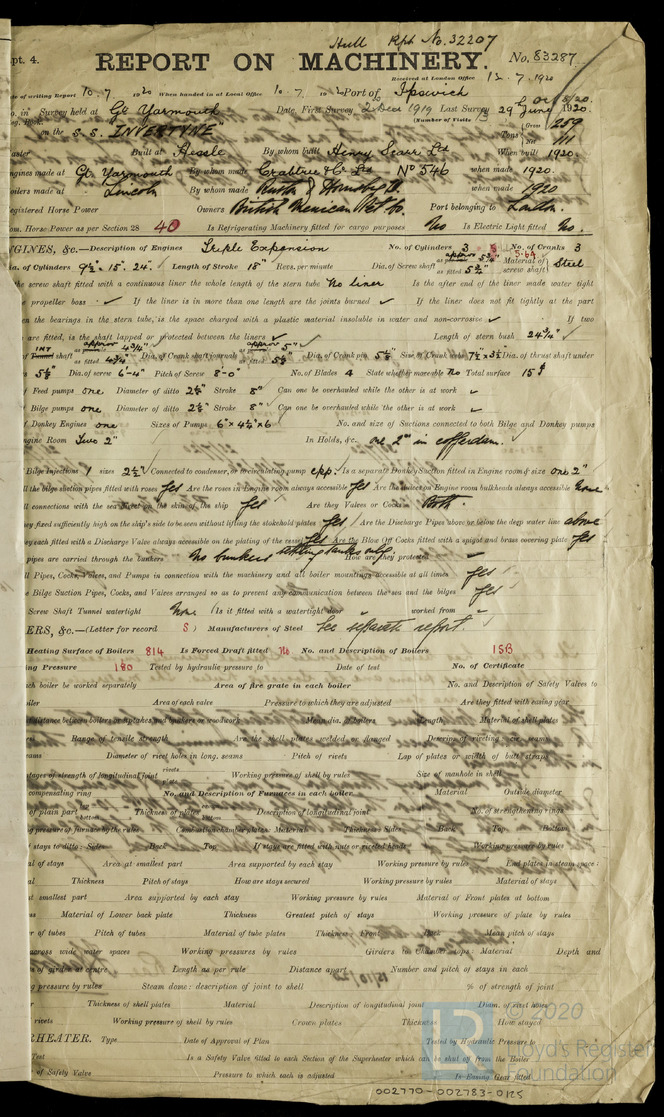 Hull Rpt No. 32207
pt. 4. REPORT ON MACHINERY. No. 83287
Received at London Office 12.7.1920
of writing Report 10.7 1920 When handed in at Local Office 10.7. 19 Port of Ipswich
in Survey held at Gt. Yarmouth Date, First Survey 2 Dec 1919 Last Survey 29 June 1920.
(Number of Visits
on the S.S. INVERTYNE Gross 259
Tons Net 111
Built at Hessle By whom built Henry Scarr Ltd When built 1920.
ngines made at Gt. Yarmouth By whom made Crabtree & Co Ltd No 546 when made 1920.
oilers made at Lincoln By whom made Ruston & Hornsby when made 1920
egistered Horse Power Owners British Mexican Pet Co. Port belonging to London.
om. Horse Power as per Section 28 40 Is Refrigerating Machinery fitted for cargo purposes No Is Electric Light fitted No.
NGINES, &c.—Description of Engines Triple Expansion No. of Cylinders 3 No. of Cranks 3
ia. of Cylinders 9½" 15" 24" Length of Stroke 18" Revs. per minute Dia. of Screw shaft as fitted 5¾" Material of screw shaft Steel
the screw shaft fitted with a continuous liner the whole length of the stern tube No liner Is the after end of the liner made water tight
propeller boss ✓ If the liner is in more than one length are the joints burned ✓ If the liner does not fit tightly at the part
the bearings in the stern tube, is the space charged with a plastic material insoluble in water and non-corrosive ✓ If two
are fitted, is the shaft lapped or protected between the liners ✓ Length of stern bush 24¾"
shaft as fitted 4¾" Dia. of Crank shaft journals as fitted 5⅛" Dia. of Crank pin 5⅛" Size of Crank webs 7½" x 3½" Dia. of thrust shaft under
5⅛" Dia. of screw 6'-4" Pitch of Screw 8'-0" No. of Blades 4 State whether moveable No Total surface 15
Feed pumps one Diameter of ditto 2½" Stroke 8" Can one be overhauled while the other is at work ✓
Bilge pumps one Diameter of ditto 2½" Stroke 8" Can one be overhauled while the other is at work ✓
Donkey Engines one Sizes of Pumps 6" x 4½" x 6 No. and size of Suctions connected to both Bilge and Donkey pumps
ngine Room Two 2" In Holds, &c. one 2" in cofferdam.
Bilge Injections 1 sizes 2½" Connected to condenser, or to circulating pump Is a separate Donkey Suction fitted in Engine room & size one 2"
ll the bilge suction pipes fitted with roses Yes Are the roses in Engine room always accessible Yes Are the sluices on Engine room bulkheads always accessible None
ll connections with the sea direct on the skin of the ship Yes Are they Valves or Cocks Both
ey fixed sufficiently high on the ship's side to be seen without lifting the stokehold plates Yes Are the Discharge Pipes above or below the deep water line above
ey each fitted with a Discharge Valve always accessible on the plating of the vessel Yes Are the Blow Off Cocks fitted with a spigot and brass covering plate Yes
pipes are carried through the bunkers No bunkers settling tanks only. How are they protected ✓
ll Pipes, Cocks, Valves, and Pumps in connection with the machinery and all boiler mountings accessible at all times Yes
e Bilge Suction Pipes, Cocks, and Valves arranged so as to prevent any communication between the sea and the bilges Yes
Screw Shaft Tunnel watertight None Is it fitted with a watertight door " worked from "
ERS, &c.—(Letter for record S) Manufacturers of Steel See separate report.
Heating Surface of Boilers 814 Is Forced Draft fitted No No. and Description of Boilers 1SB
ng Pressure 180 Tested by hydraulic pressure to Date of test No. of Certificate
ach boiler be worked separately Area of fire grate in each boiler No. and Description of Safety Valves to
iler Area of each valve Pressure to which they are adjusted Are they fitted with easing gear
distance between boilers or uptakes and bunkers or woodwork Mean dia. of boilers Length Material of shell plates
Range of tensile strength Are the shell plates welded or flanged Descrip. of riveting: cir. seams
ams Diameter of rivet holes in long. seams Pitch of rivets Lap of plates or width of butt straps
ntages of strength of longitudinal joint rivets plate Working pressure of shell by rules Size of manhole in shell
compensating ring No. and Description of Furnaces in each boiler Material Outside diameter
of plain part top bottom Thickness of plates crown bottom Description of longitudinal joint No. of strengthening rings
ng pressure of furnace by the rules Combustion chamber plates: Material Thickness: Sides Back Top Bottom
stays to ditto: Sides Back Top If stays are fitted with nuts or riveted heads Working pressure by rules
al of stays Area at smallest part Area supported by each stay Working pressure by rules End plates in steam space:
al Thickness Pitch of stays How are stays secured Working pressure by rules Material of stays
at smallest part Area supported by each stay Working pressure by rules Material of Front plates at bottom
ss Material of Lower back plate Thickness Greatest pitch of stays Working pressure of plate by rules
r of tubes Pitch of tubes Material of tube plates Thickness: Front Back Mean pitch of stays
across wide water spaces Working pressures by rules Girders to Chamber tops: Material Depth and
s of girder at centre Length as per rule Distance apart Number and pitch of stays in each
ng pressure by rules Steam dome: description of joint to shell % of strength of joint
r Thickness of shell plates Material Description of longitudinal joint Diam. of rivet holes
rivets Working pressure of shell by rules Crown plates Thickness How stayed
RHEATER. Type Date of Approval of Plan Tested by Hydraulic Pressure to
Test Is a Safety Valve fitted to each Section of the Superheater which can be shut off from the Boiler
of Safety Valve Pressure to which each is adjusted Is Easing Gear fitted
LR © 2020
Lloyd's Register
Foundation
002770-002783-0125